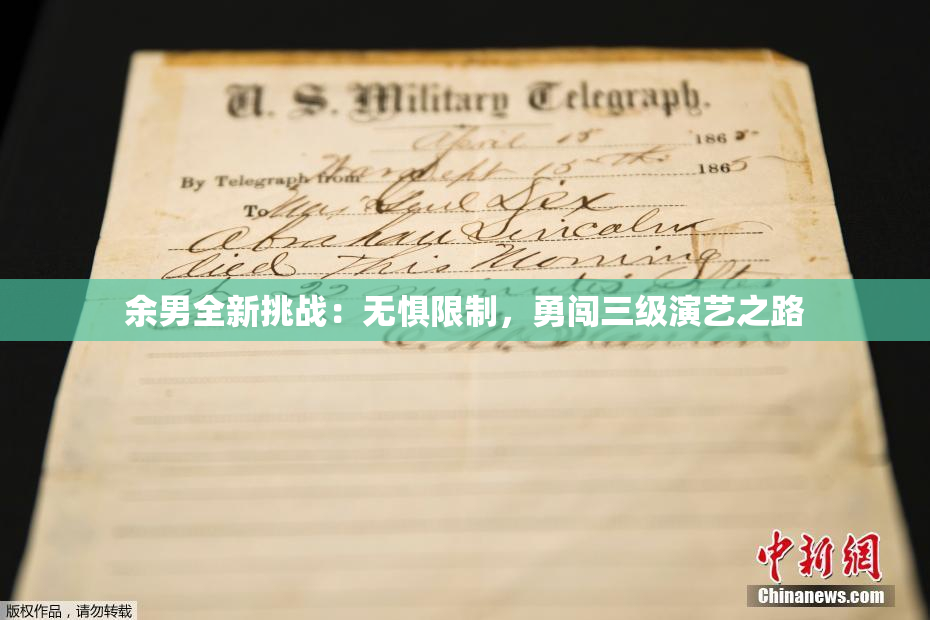 U. S. Military Telegraph.
April 15 1865
By Telegraph from War Dept 15th 1865
To Maj Genl Dix
Abraham Lincoln
died This Morning
at 22 minutes after
余男全新挑战：无惧限制，勇闯三级演艺之路
E. M. Stanton
中新网
Chinanews.com
版权作品，请勿转载